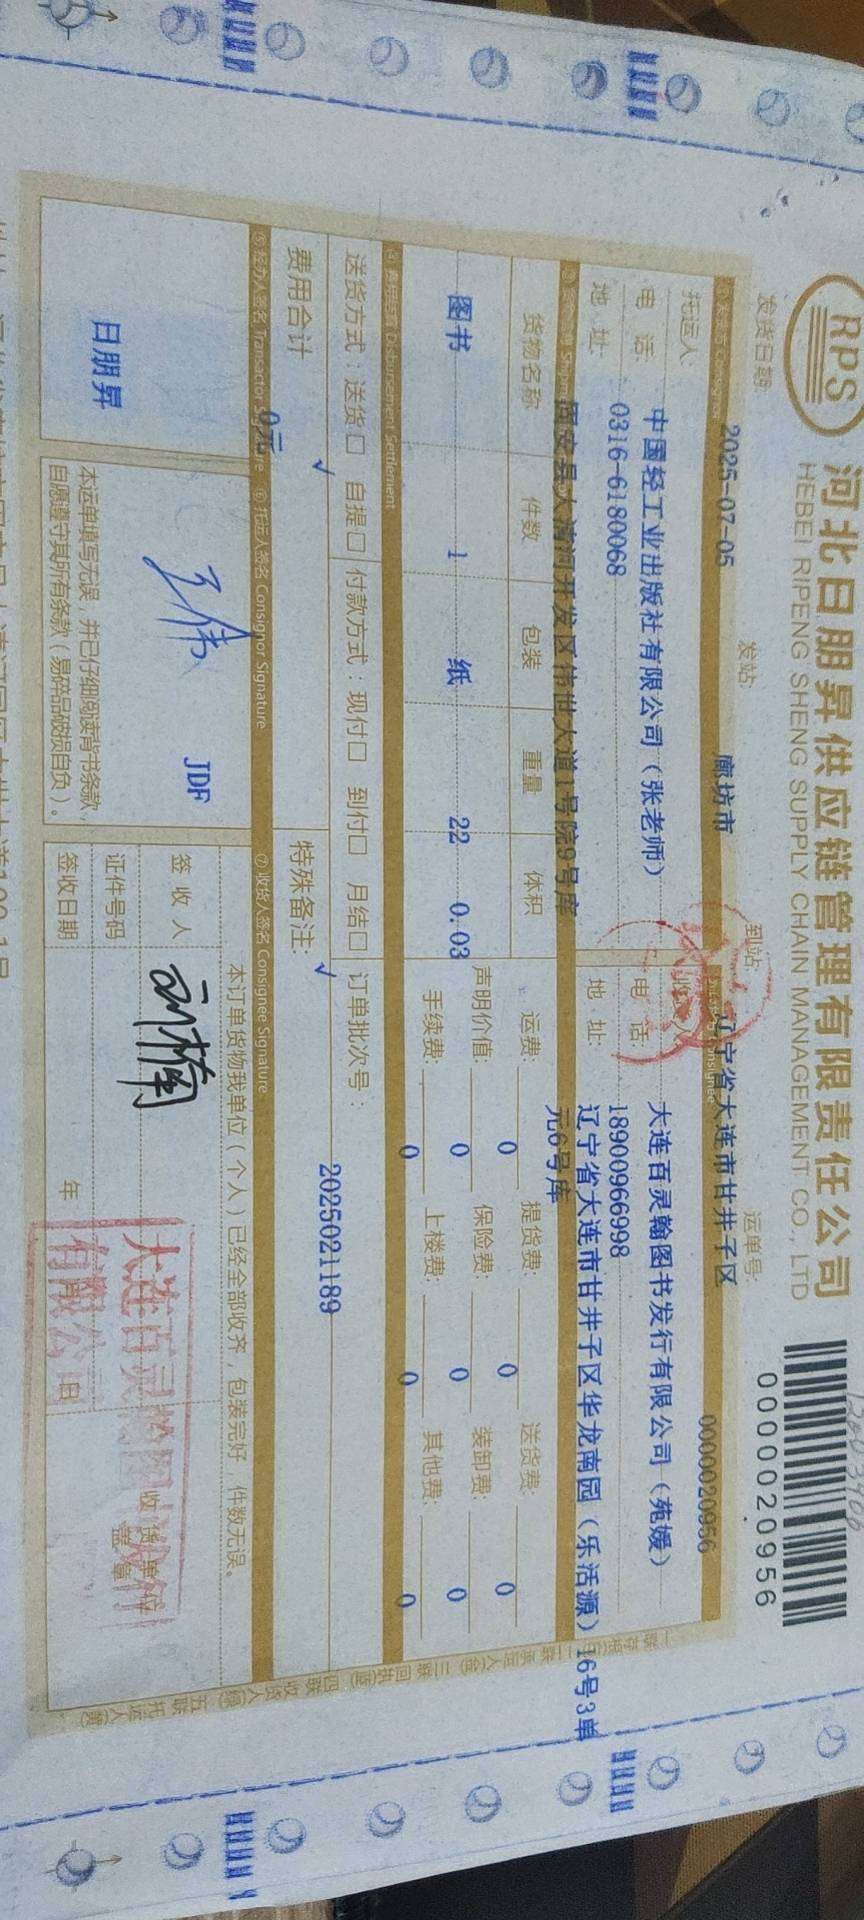 RPS
河北日朋昇供应链管理有限责任公司
HEBEI RIPENG SHENG SUPPLY CHAIN MANAGEMENT CO., LTD
0000020956
发货日期: 2025-07-05 发站: 廊坊市 到站: 辽宁省大连市甘井子区 运单号: 0000020956
托运人: 中国轻工业出版社有限公司（张老师） 大连百灵翰图书发行有限公司（苑媛）
电 话: 0316-6180068 电 话: 18900966998
地 址: 固安县大清河开发区伟世大道1号院9号库 地 址: 辽宁省大连市甘井子区华龙南园（乐活源）16号3单
元6号库
货物名称 件数 包装 重量 体积 运费: 0 提货费: 0 送货费: 0
图书 1 纸 22 0.03 声明价值: 0 保险费: 0 装卸费: 0
手续费: 0 上楼费: 0 其他费: 0
④ 费用结算 Disbursement Settlement
送货方式：送货□ 自提□ 付款方式：现付□ 到付□ 月结□ 订单批次号： 2025021189
√ √
费用合计 0元 特殊备注:
⑤ 经办人签名 Transactor Signature ⑥ 托运人签名 Consignor Signature ⑦ 收货人签名 Consignee Signature
本订单货物我单位（个人）已经全部收齐，包装完好，件数无误。
日朋昇 JDF 签 收 人 刘楠
收货单位
盖章
证件号码
本运单填写无误，并已仔细阅读背书条款，
自愿遵守其所有条款（易碎品破损自负）。
签收日期 年 月 日
大连百灵翰图书发行
有限公司